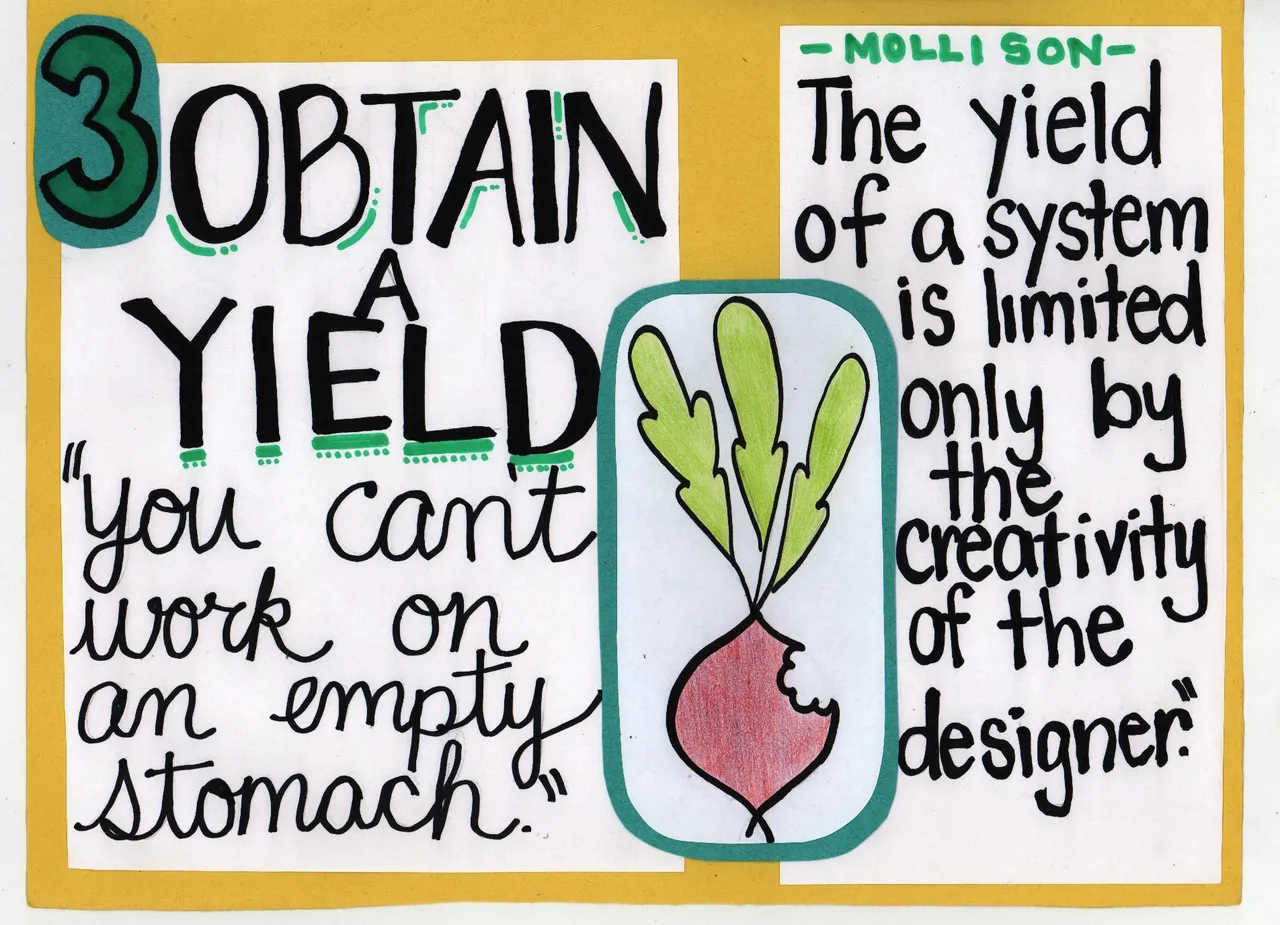 3 OBTAIN
A
YIELD
"you can't
work on
an empty
stomach."
-MOLLISON-
The yield
of a system
is limited
only by
the
creativity
of the
designer."